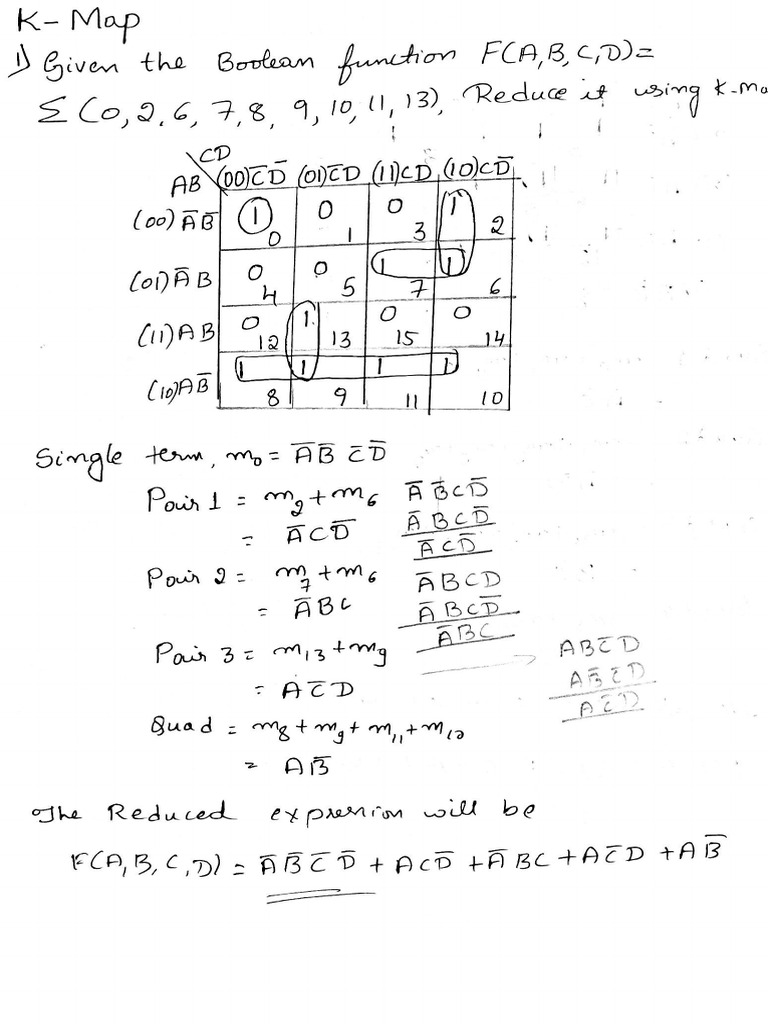 K- Map
1) Given the Boolean function F(A,B,C,D)=
Σ(0,2,6,7,8,9,10,11,13), Reduce it using K-Ma
CD
AB (00)C̅D̅ (01)C̅D (11)CD (10)CD̅
(00)A̅B̅ 1 0 0 1
0 1 3 2
(01)A̅B 0 0 1 1
4 5 7 6
(11)AB 0 1 0 0
12 13 15 14
(10)AB̅ 1 1 1 1
8 9 11 10
Single term, m₀ = A̅B̅C̅D̅
Pair 1 = m₂+m₆ A̅B̅CD̅
= A̅CD̅ A̅BCD̅
A̅CD̅
Pair 2 = m₇+m₆ A̅BCD
= A̅BC A̅BCD̅
A̅BC
Pair 3 = m₁₃+m₉ ABC̅D
= AC̅D AB̅C̅D
AC̅D
Quad = m₈+m₉+m₁₁+m₁₀
= AB̅
The Reduced expression will be
F(A,B,C,D) = A̅B̅C̅D̅ + ACD̅ + A̅BC + AC̅D + AB̅